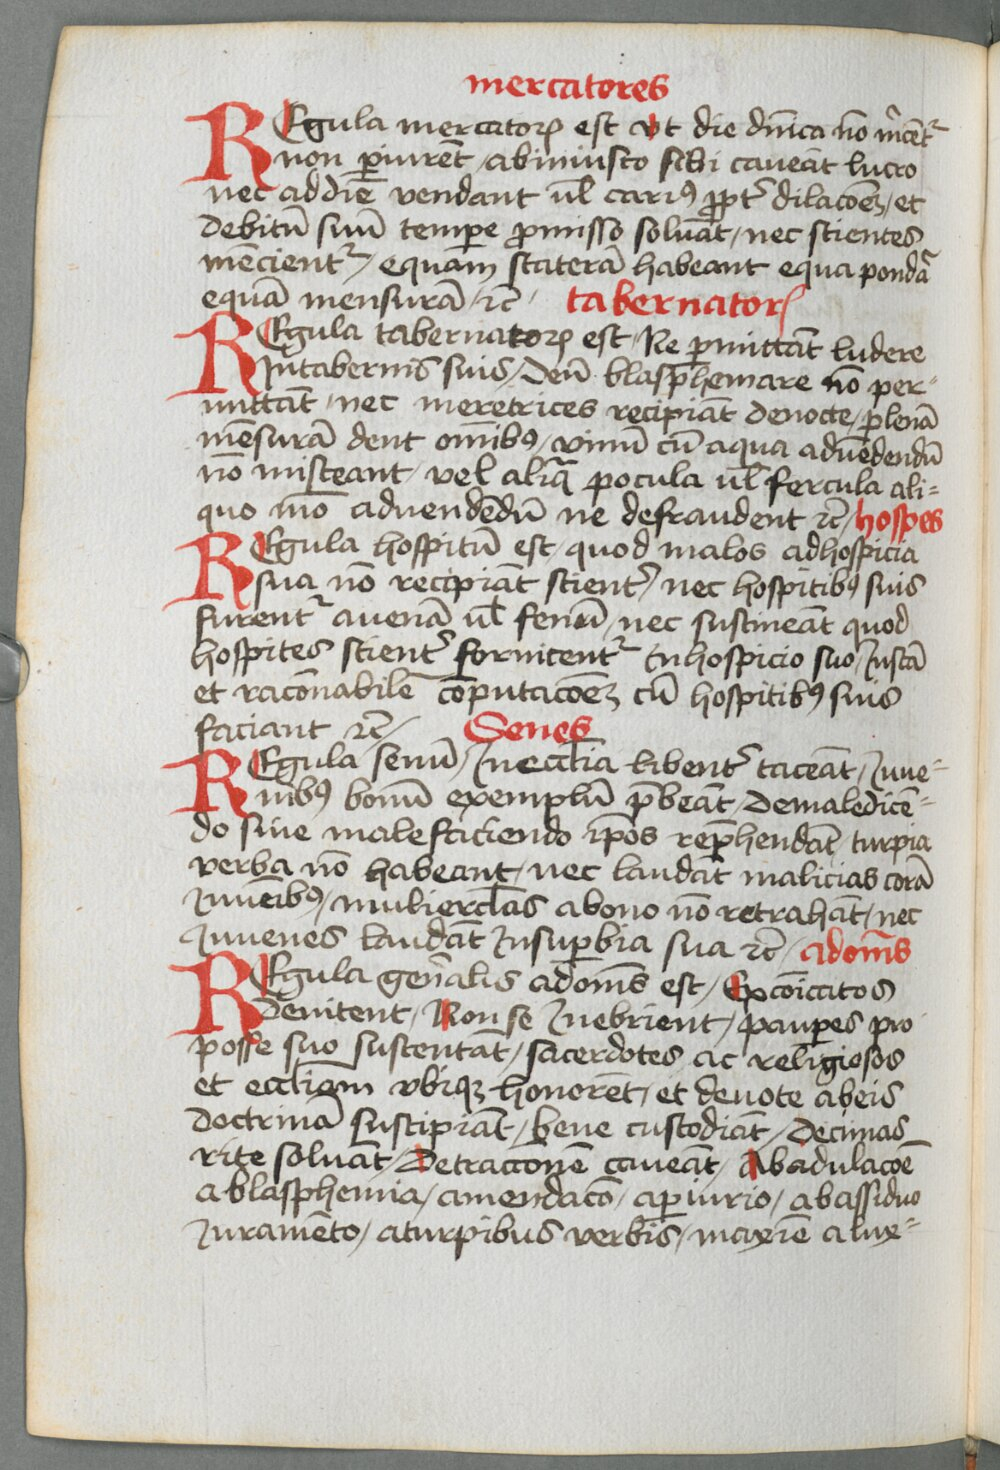 mercatores
REgula mercatoꝝ est vt die dn̄ica nō m̄cēt᷑
non ꝑiurēt / abiniusto sibi caveāt lucro
nec addiē vendant ul̄ cariꝰ ꝓpt̄ dilacōeꝫ / et
debitū suū tempe ꝓmisso soluāt / nec scientes
mēcient᷑ / equam staterā habeant equa pondā
equā mensurā / ⁊c̄ / tabernatoꝝ
REgula tabernatoꝝ est / Ne ꝑmittāt ludere
Jntabernis suis / deū blasphemare nō per=
mittāt / nec meretrices recipiāt denocte / plenā
mēsurā dent om̄ibꝰ / vinū cū aqua advēdendū
nō misceant / vel aliq̄ pocula ul̄ fercula ali=
quo mō advendēdū ne defraudent ⁊c̄ / hospes
REgula hospitū est / quod malos adhospicia
sua nō recipiāt scient᷑ / nec hospitibꝰ suis
furent᷑ avenā ul̄ fenū / nec sustineāt quod
hospites scient᷑ fornicent᷑ Jnhospicio suo / Justā
et racōnabilē cōputacōeꝫ cū hospitibꝰ suis
faciant ⁊c̄ / Senes
REgula senū / Jnecclīa libent᷑ taceāt / Juve=
nibꝰ bonū exemplū p̄beāt / demaledicē=
do sive malefaciendo ip̄os rep̄hendāt / turpia
verba nō habeant / nec laudāt malicias corā
Juvēibꝰ / muliercl̄as abono nō retrahāt / nec
Juvenes laudāt Jnsuꝑbia sua ⁊c̄ / adom̄s
REgula gen̄alis adom̄s est / Excōiccatos
devitent / Non se Jnebrient / pauꝑes pro
posse suo sustentāt / sacerdotes ac religiosos
et eccl̄iam vbiqꝫ honorēt / et devote abeis
doctrinā suscipiāt / bene custodiāt / Decimas
rite soluāt / Detraccionē caveāt / Abadulacōē
ablasphemia / amendacō / aꝑiurio / abassiduo
Juramēto / aturpibus verbis / maxīe alux=